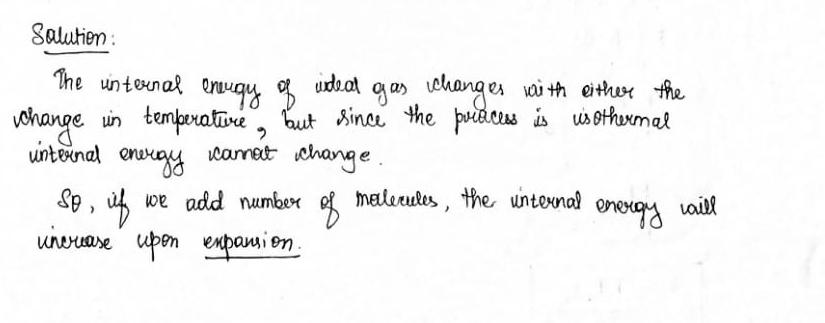 Solution:
The internal energy of ideal gas changes with either the
change in temperature, but since the process is isothermal
internal energy cannot change.
So, if we add number of molecules, the internal energy will
increase upon expansion.